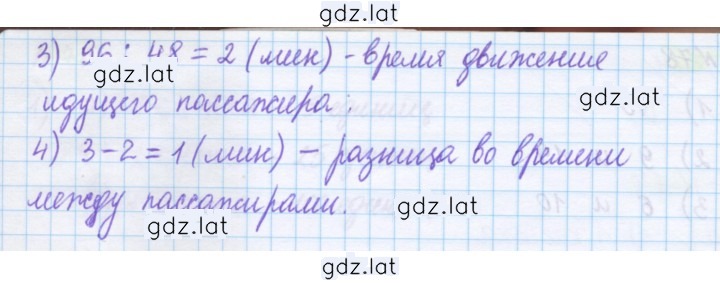 gdz.lat
3) 96 : 48 = 2 (мин) - время движение
gdz.lat
идущего пассажира.
gdz.lat
4) 3 - 2 = 1 (мин) - разница во времени
между пассажирами.
gdz.lat
gdz.lat
gdz.lat